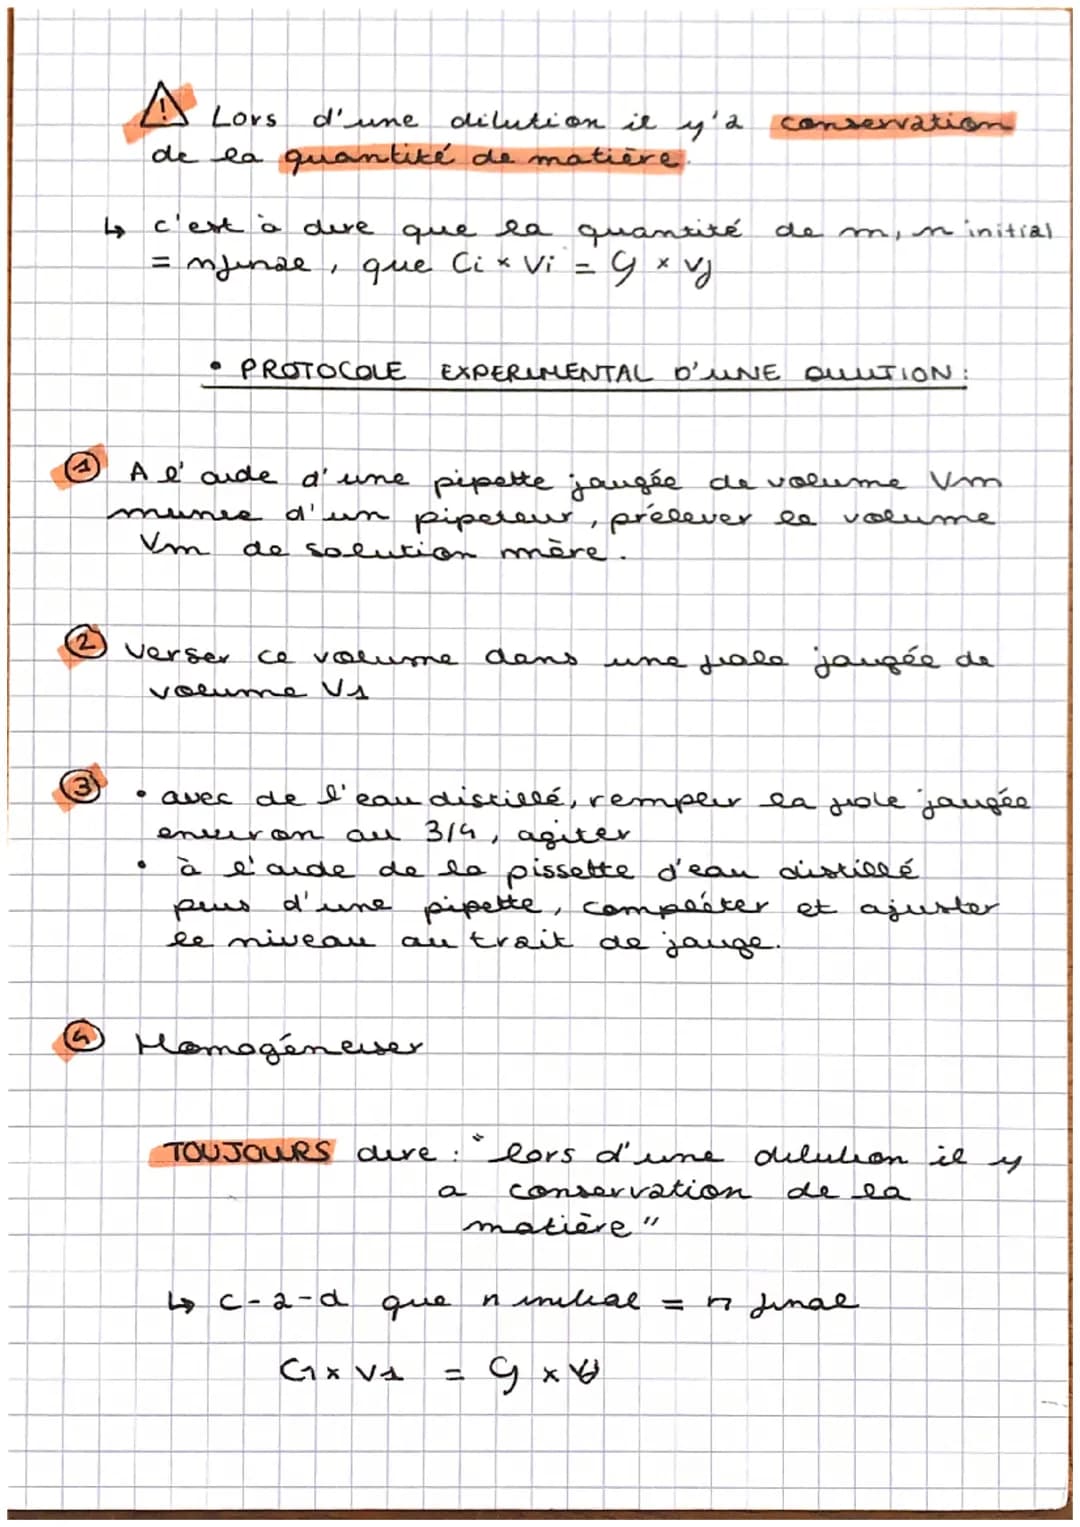 ⚠ Lors d'une dilution il y'a conservation
de la quantité de matière.
↳ c'est à dire que la quantité de m, n initial
= nfinale, que Ci × Vi = Cf × Vf
• PROTOCOLE EXPERIMENTAL D'UNE DILUTION :
① A l'aide d'une pipette jaugée de volume Vm
munie d'un pipeteur, prélever le volume
Vm de solution mère.
② verser ce volume dans une fiole jaugée de
volume V1
③ • avec de l'eau distillé, remplir la fiole jaugée
environ au 3/4, agiter
• à l'aide de la pissette d'eau distillé
puis d'une pipette, compléter et ajuster
le niveau au trait de jauge.
④ Homogéneiser
TOUJOURS dire : "lors d'une dilution il y
a conservation de la
matière"
↳ c-a-d que n initial = n final
C1 × V1 = Cf × Vf